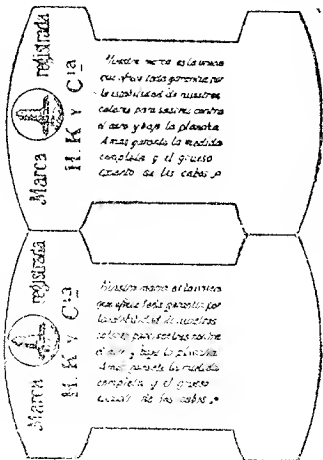 Marca registrada
H. K y Cia
Nuestra marca es la unica
que ofrece toda garantia por
la estabilidad de nuestros
colores para sastres contra
el aire y bajo la plancha
Amas garantiza la medida
completa y el grueso
exacto de los cabos
Marca registrada
H. K y Cia
Nuestra marca es la unica
que ofrece toda garantia por
la estabilidad de nuestros
colores para sastres contra
el aire y bajo la plancha
Amas garantiza la medida
completa y el grueso
exacto de los cabos